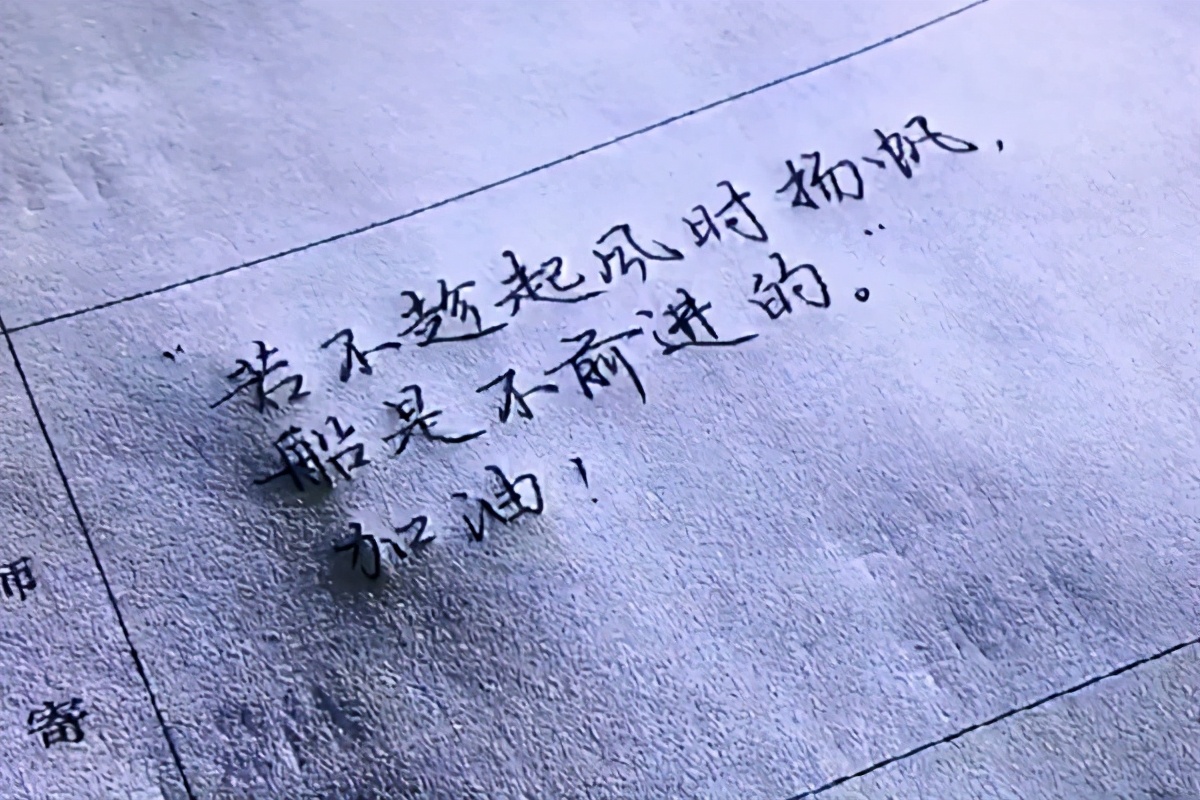 “若不趁起風时扬帆，
船是不前进的。”
加油！
师
寄